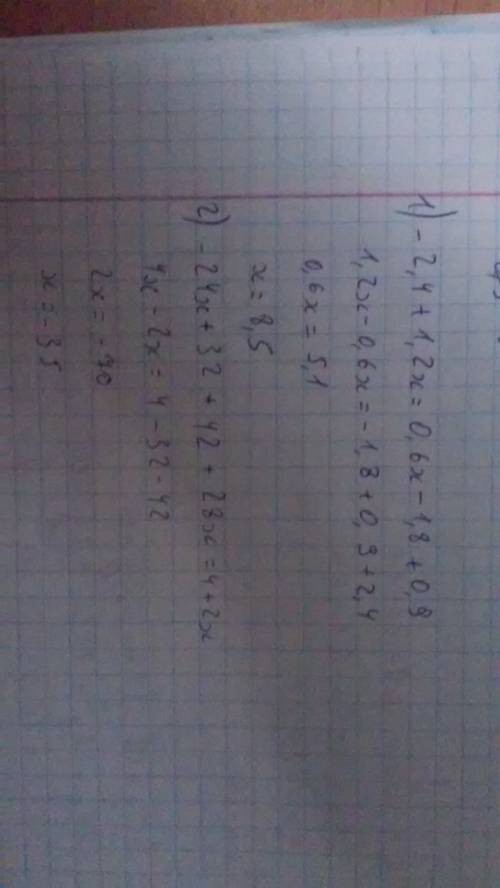 1) - 2,4 + 1,2x = 0,6x - 1,8 + 0,9
1,2x - 0,6x = - 1,8 + 0,9 + 2,4
0,6x = 5,1
x = 8,5
2) - 24x + 32 + 42 + 28x = 4 + 2x
4x - 2x = 4 - 32 - 42
2x = - 70
x = - 35